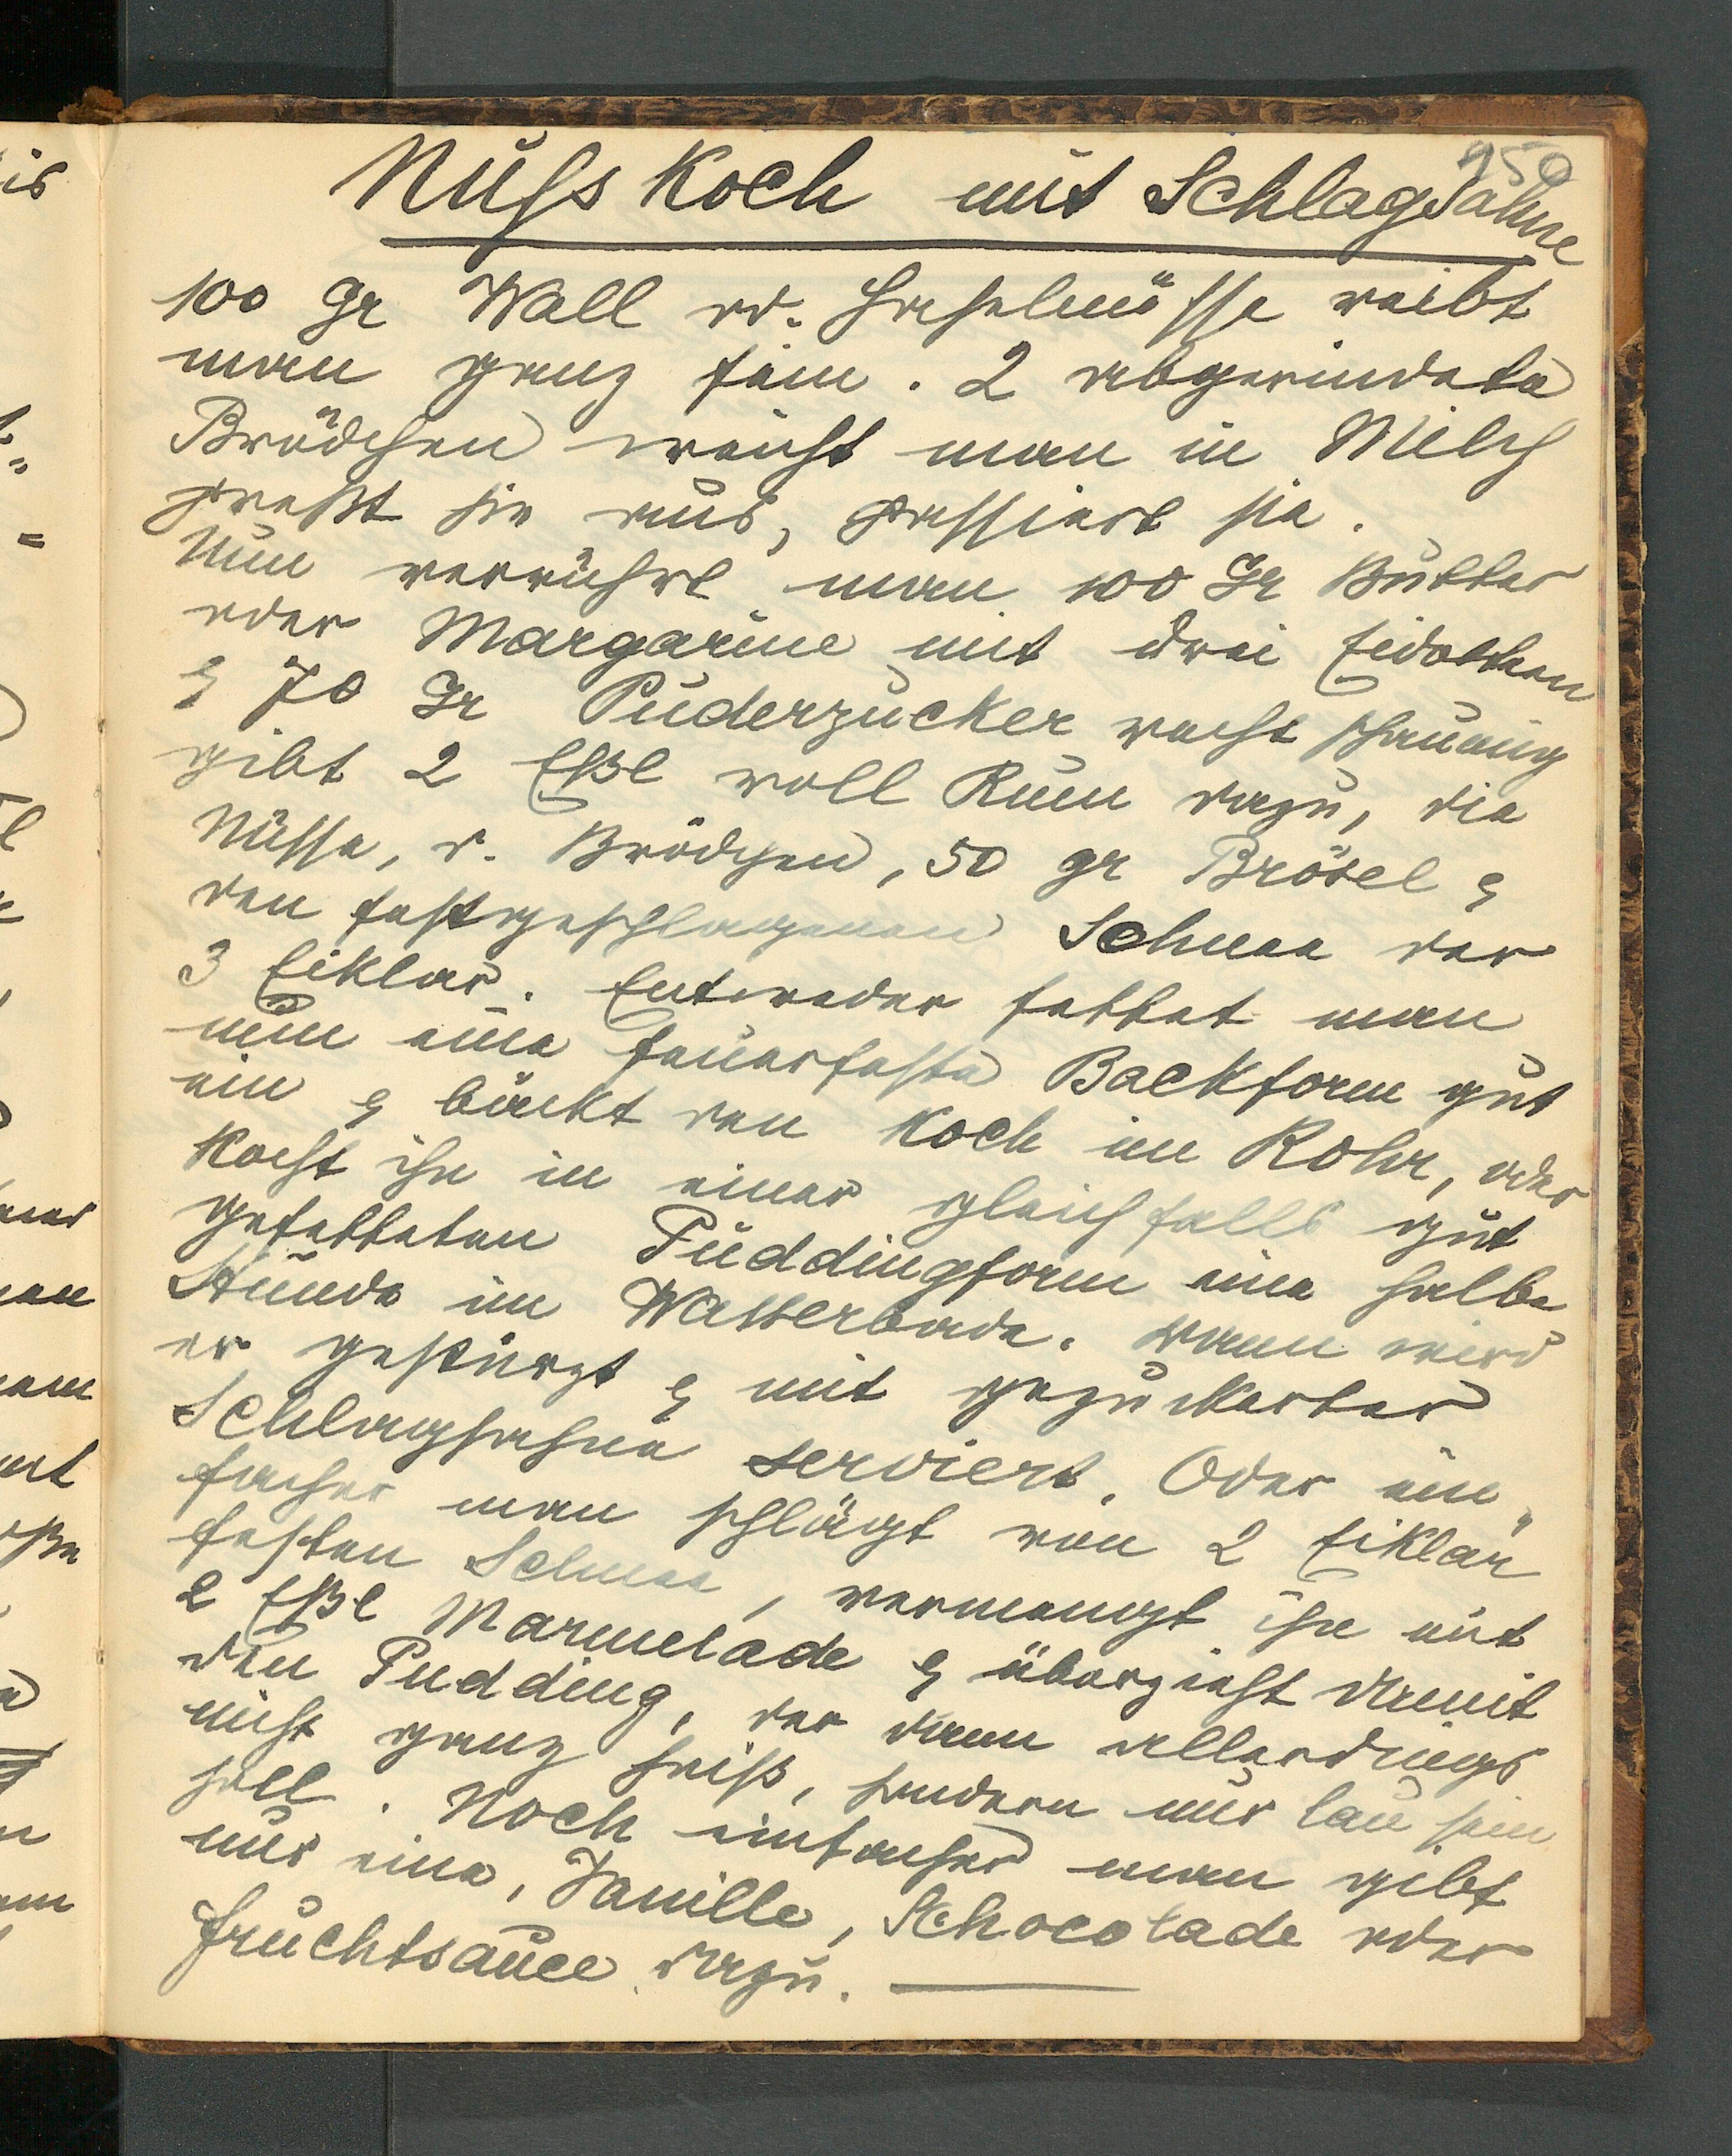 950
Nuſs Koch mit Schlagsahne
100 gr Wall od. Haselnüsse reibt
man ganz fein. 2 abgerindete
Brödchen weicht man in Milch
preßt sie aus, passiert sie.
Nun verrührt man 100 Gr Butter
oder Margarine mit drei Eidottern
& 70 Gr Puderzucker recht schaumig
gibt 2 Eßl voll Rum dazu, die
Nüsse, d. Brödchen, 50 gr Brösel &
den festgeschlagenen Schnee der
3 Eiklar. Entweder fettet man
nun eine feuerfeste Backform gut
ein & bäckt den Koch im Rohr, oder
Kocht ihn in einer gleichfalls gut
gefetteten Puddingform eine halbe
Stunde im Wasserbade. Dann wird
er gestürzt & mit gezuckerter
Schlagsahne serviert. Oder ein„
facher man schlägt von 2 Eiklar
festen Schnee, vermengt ihn mit
2 Eßl Marmelade & überzieht damit
den Pudding, der dann allerdings
nicht ganz heiß, sondern nur lau sein
soll. Noch einfacher man gibt
nur eine, Vanille, Schocolade oder
Fruchtsauce dazu.